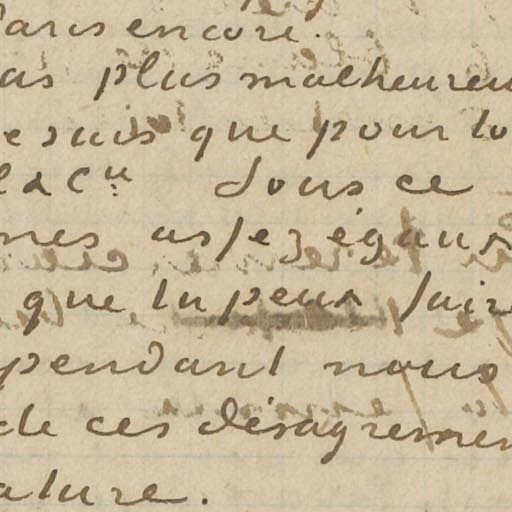 Paris encore.
as plus malheureu
e suis que pour to
l & Cie Sous ce
nes assez égaux
que tu peux faire
pendant nous
de ces désagremen
ature.